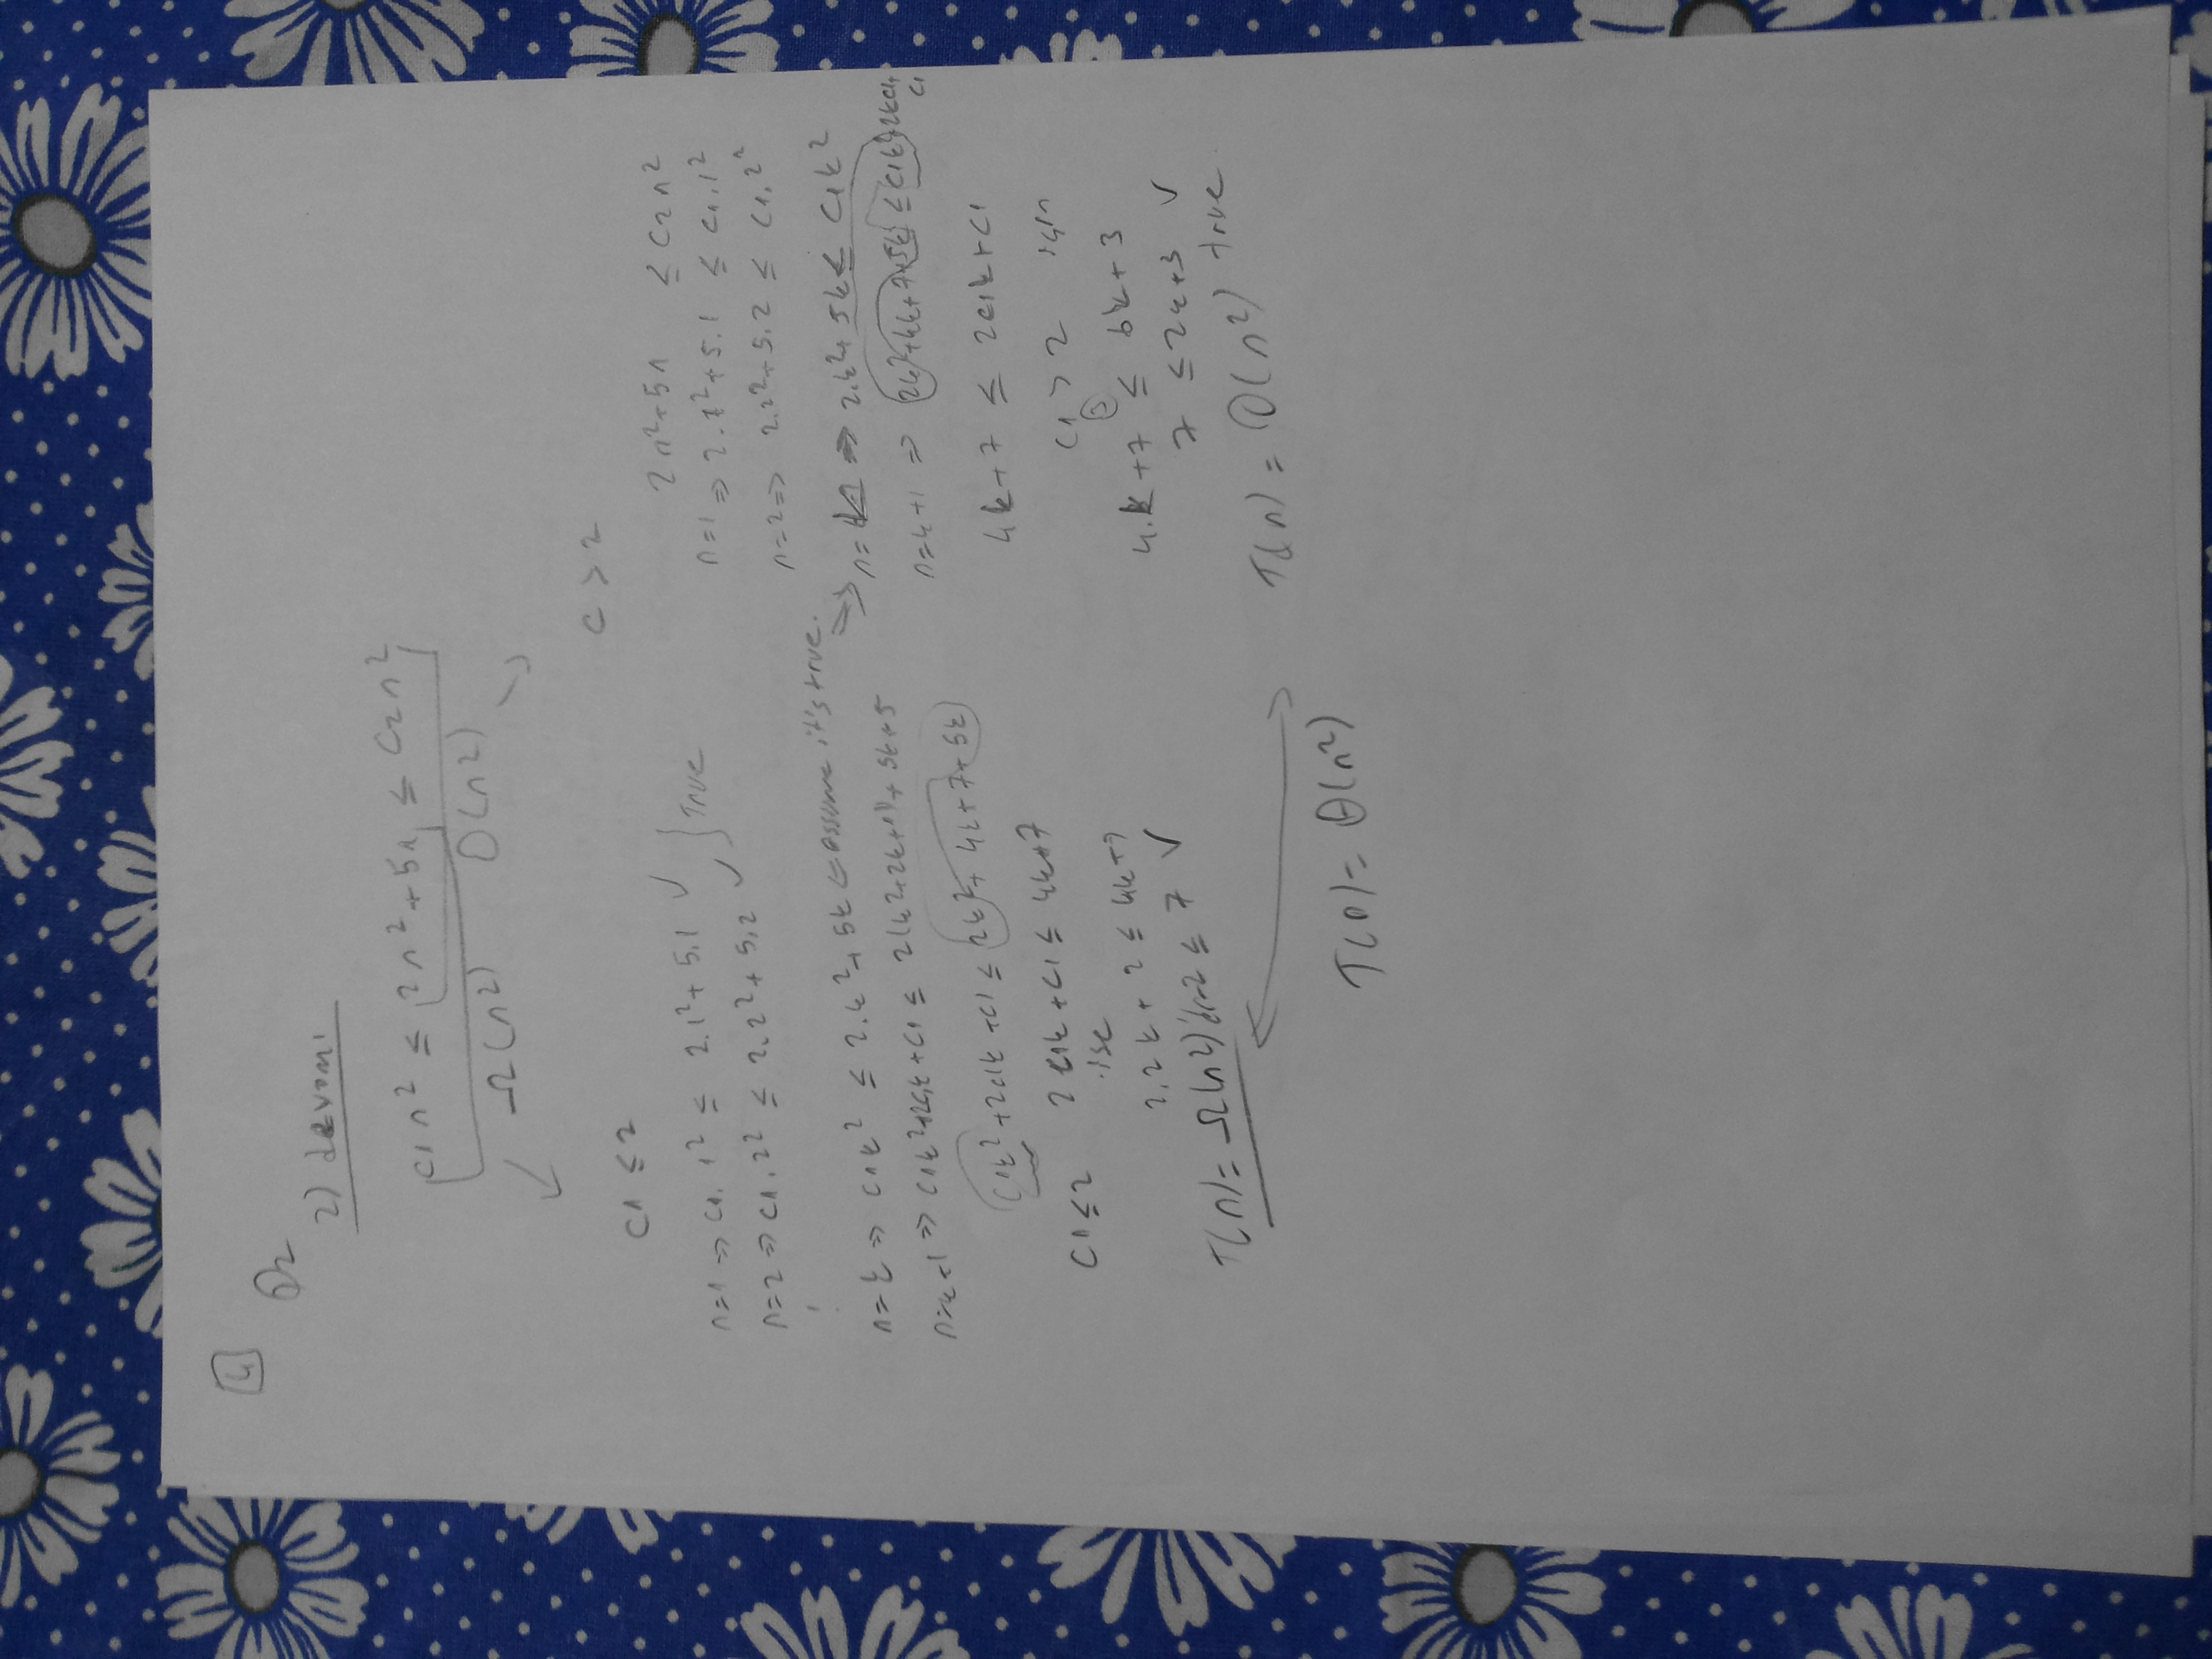 4
Q2
2) devamı
c1n² ≤ 2n²+5n ≤ c2n²
Ω(n2) O(n2)
c1 ≤ 2
n=1 => c1.1² ≤ 2.1²+5.1 ✓
n=2 => c1.2² ≤ 2.2²+5.2 ✓ } True
n=k => c1k² ≤ 2.k²+5k <= assume it's true.
n=k+1 => c1k²+2c1k+c1 ≤ 2(k²+2k+1)+5k+5
c1k²+2c1k+c1 ≤ 2k²+4k+7+5k
c1≤2 2c1k+c1 ≤ 4k+7
ise
2.2k+2 ≤ 4k+7
T(n)= Ω(n2)'dir 2 ≤ 7 ✓
c > 2
2n²+5n ≤ c2n²
n=1 => 2.1²+5.1 ≤ c1.1²
n=2 => 2.2²+5.2 ≤ c1.2²
=> n= => 2.k²+5k ≤ c1k²
n=k+1 => 2k²+4k+7+5k ≤ c1k²+2kc1+
c1
4k+7 ≤ 2c1k+c1
c1 > 2 için
3
4.k+7 ≤ 6k+3
7 ≤ 2k+3 ✓
true
T(n) = O(n²)
T(n)= Θ(n²)